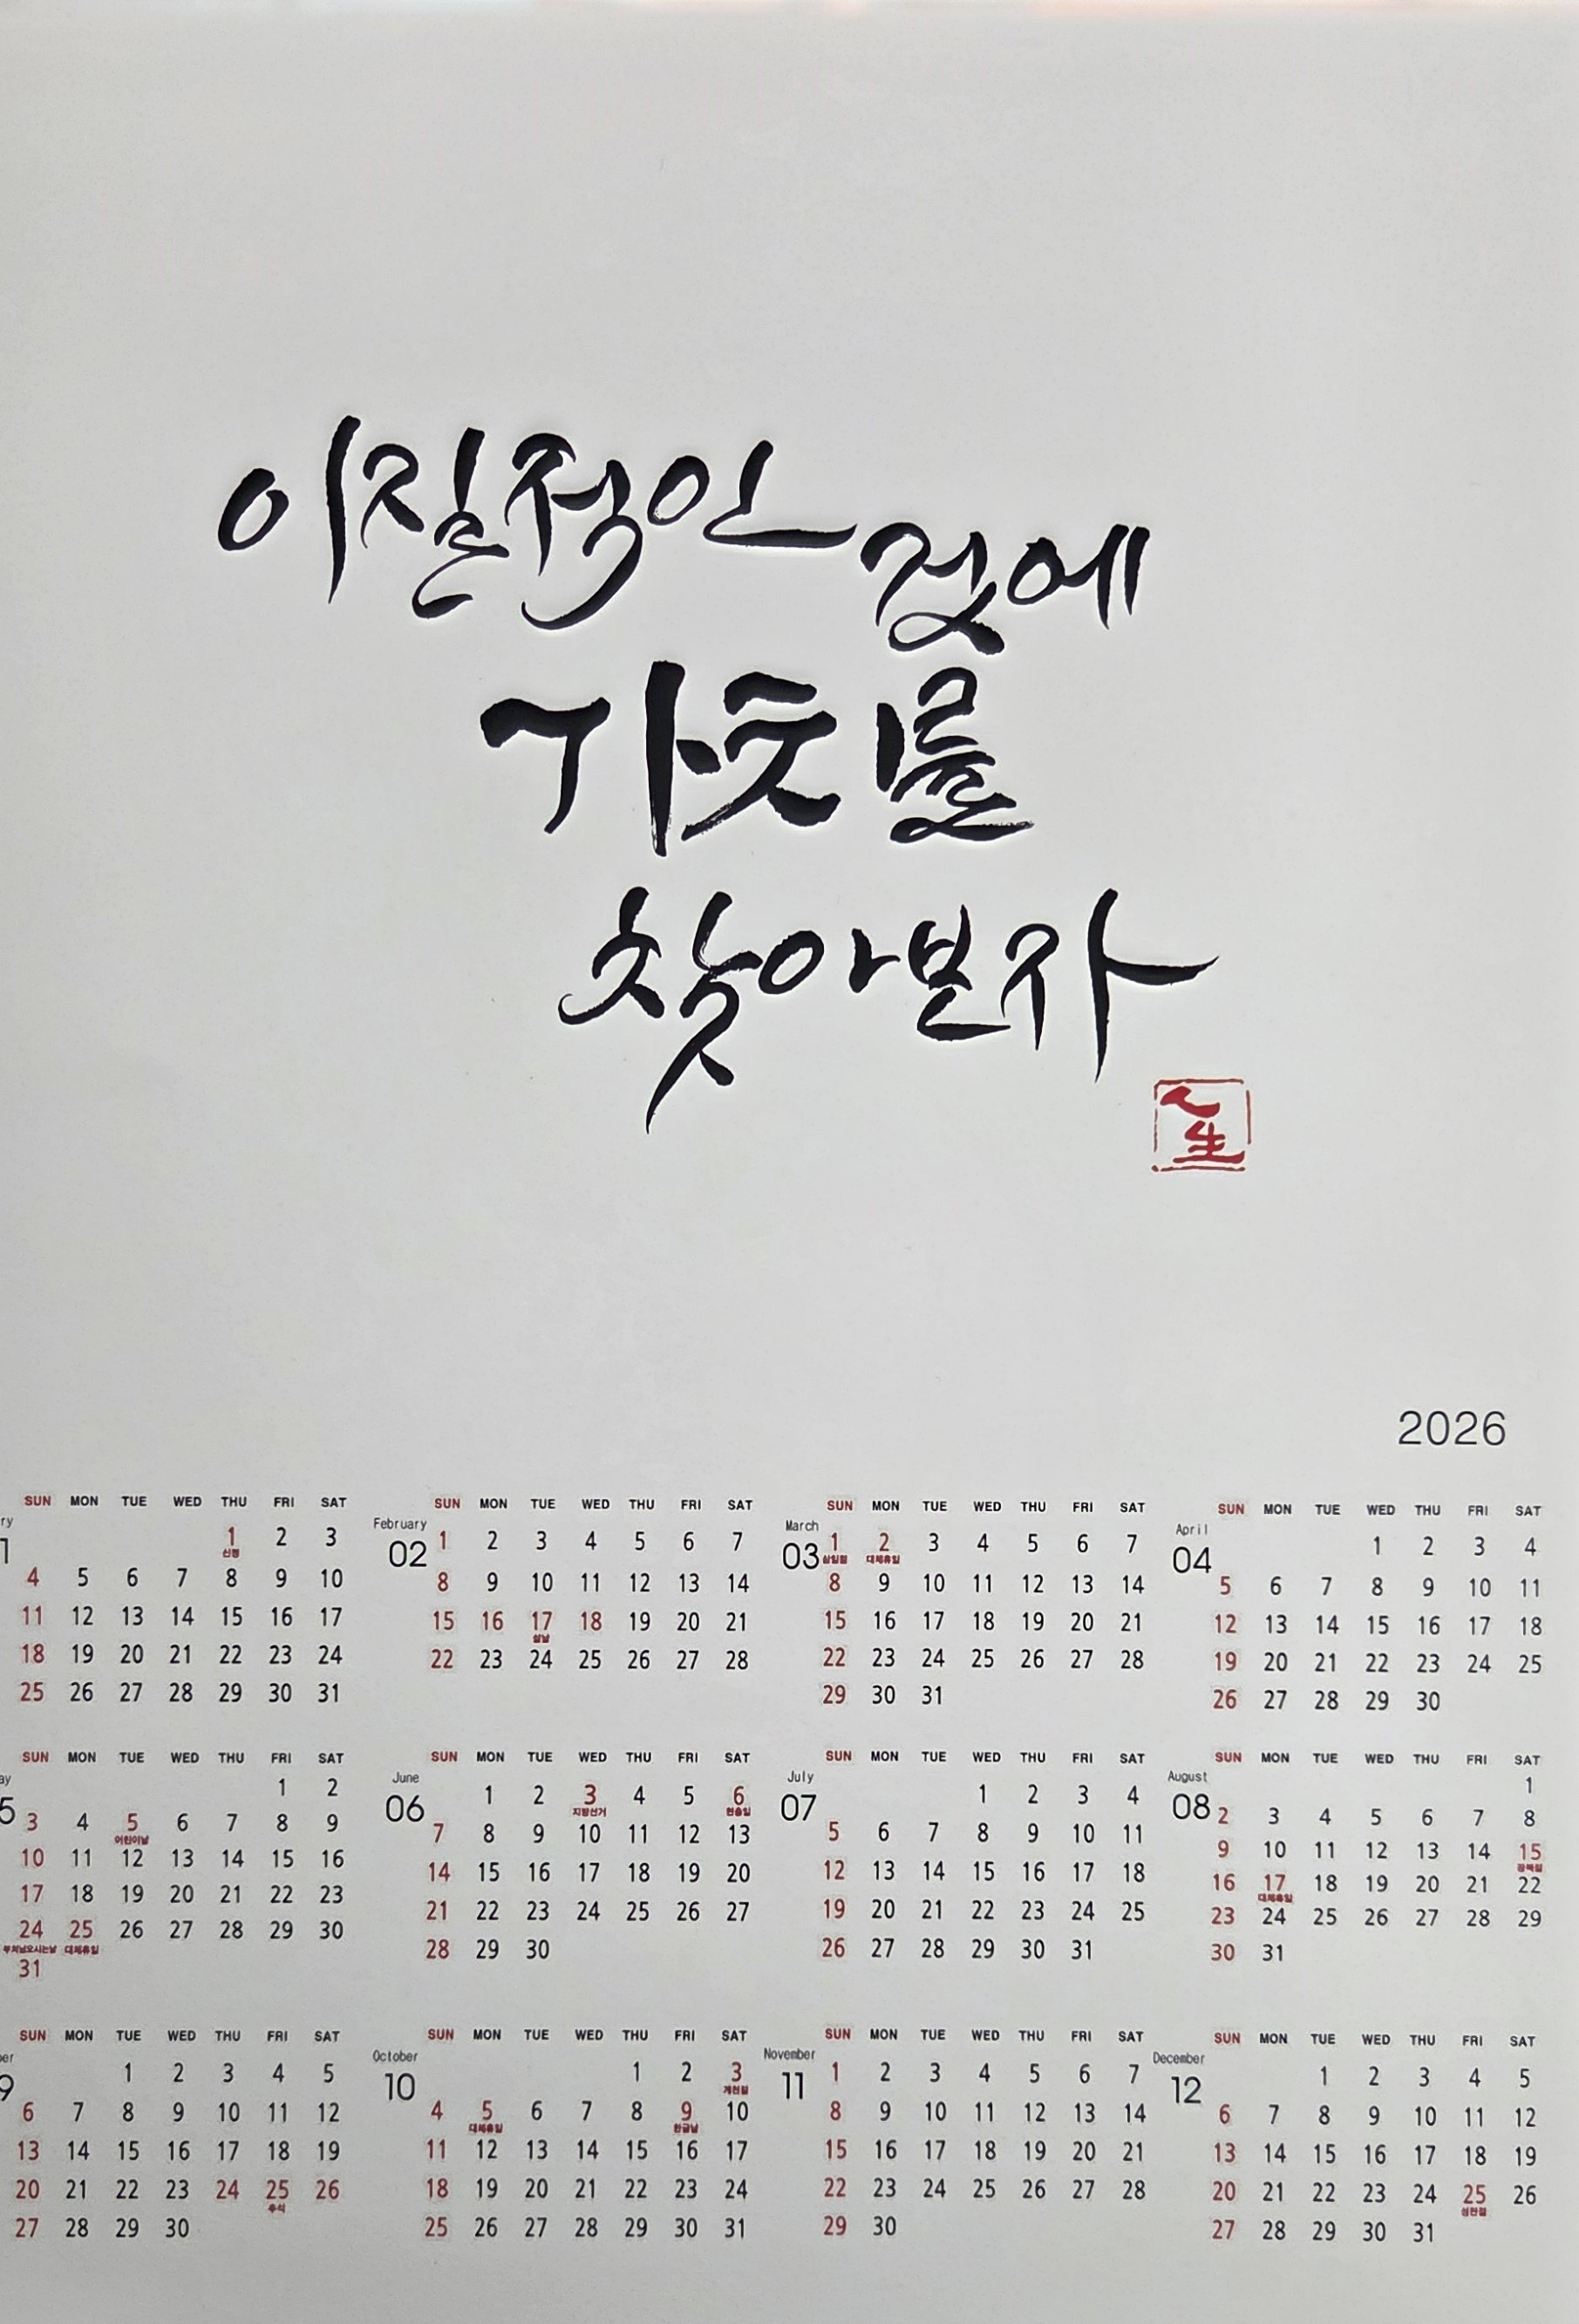 이질적인 것에
가치를
찾아보자
人生
2026
SUN MON TUE WED THU FRI SAT
1 2 3
신정
4 5 6 7 8 9 10
11 12 13 14 15 16 17
18 19 20 21 22 23 24
25 26 27 28 29 30 31
February
02
SUN MON TUE WED THU FRI SAT
1 2 3 4 5 6 7
8 9 10 11 12 13 14
15 16 17 18 19 20 21
설날
22 23 24 25 26 27 28
March
03
SUN MON TUE WED THU FRI SAT
1 2 3 4 5 6 7
삼일절 대체휴일
8 9 10 11 12 13 14
15 16 17 18 19 20 21
22 23 24 25 26 27 28
29 30 31
April
04
SUN MON TUE WED THU FRI SAT
1 2 3 4
5 6 7 8 9 10 11
12 13 14 15 16 17 18
19 20 21 22 23 24 25
26 27 28 29 30
5
SUN MON TUE WED THU FRI SAT
1 2
3 4 5 6 7 8 9
어린이날
10 11 12 13 14 15 16
17 18 19 20 21 22 23
24 25 26 27 28 29 30
부처님오시는날 대체휴일
31
June
06
SUN MON TUE WED THU FRI SAT
1 2 3 4 5 6
지방선거 현충일
7 8 9 10 11 12 13
14 15 16 17 18 19 20
21 22 23 24 25 26 27
28 29 30
July
07
SUN MON TUE WED THU FRI SAT
1 2 3 4
5 6 7 8 9 10 11
12 13 14 15 16 17 18
19 20 21 22 23 24 25
26 27 28 29 30 31
August
08
SUN MON TUE WED THU FRI SAT
1
2 3 4 5 6 7 8
9 10 11 12 13 14 15
광복절
16 17 18 19 20 21 22
대체휴일
23 24 25 26 27 28 29
30 31
9
SUN MON TUE WED THU FRI SAT
1 2 3 4 5
6 7 8 9 10 11 12
13 14 15 16 17 18 19
20 21 22 23 24 25 26
추석
27 28 29 30
October
10
SUN MON TUE WED THU FRI SAT
1 2 3
개천절
4 5 6 7 8 9 10
대체휴일 한글날
11 12 13 14 15 16 17
18 19 20 21 22 23 24
25 26 27 28 29 30 31
November
11
SUN MON TUE WED THU FRI SAT
1 2 3 4 5 6 7
8 9 10 11 12 13 14
15 16 17 18 19 20 21
22 23 24 25 26 27 28
29 30
December
12
SUN MON TUE WED THU FRI SAT
1 2 3 4 5
6 7 8 9 10 11 12
13 14 15 16 17 18 19
20 21 22 23 24 25 26
성탄절
27 28 29 30 31